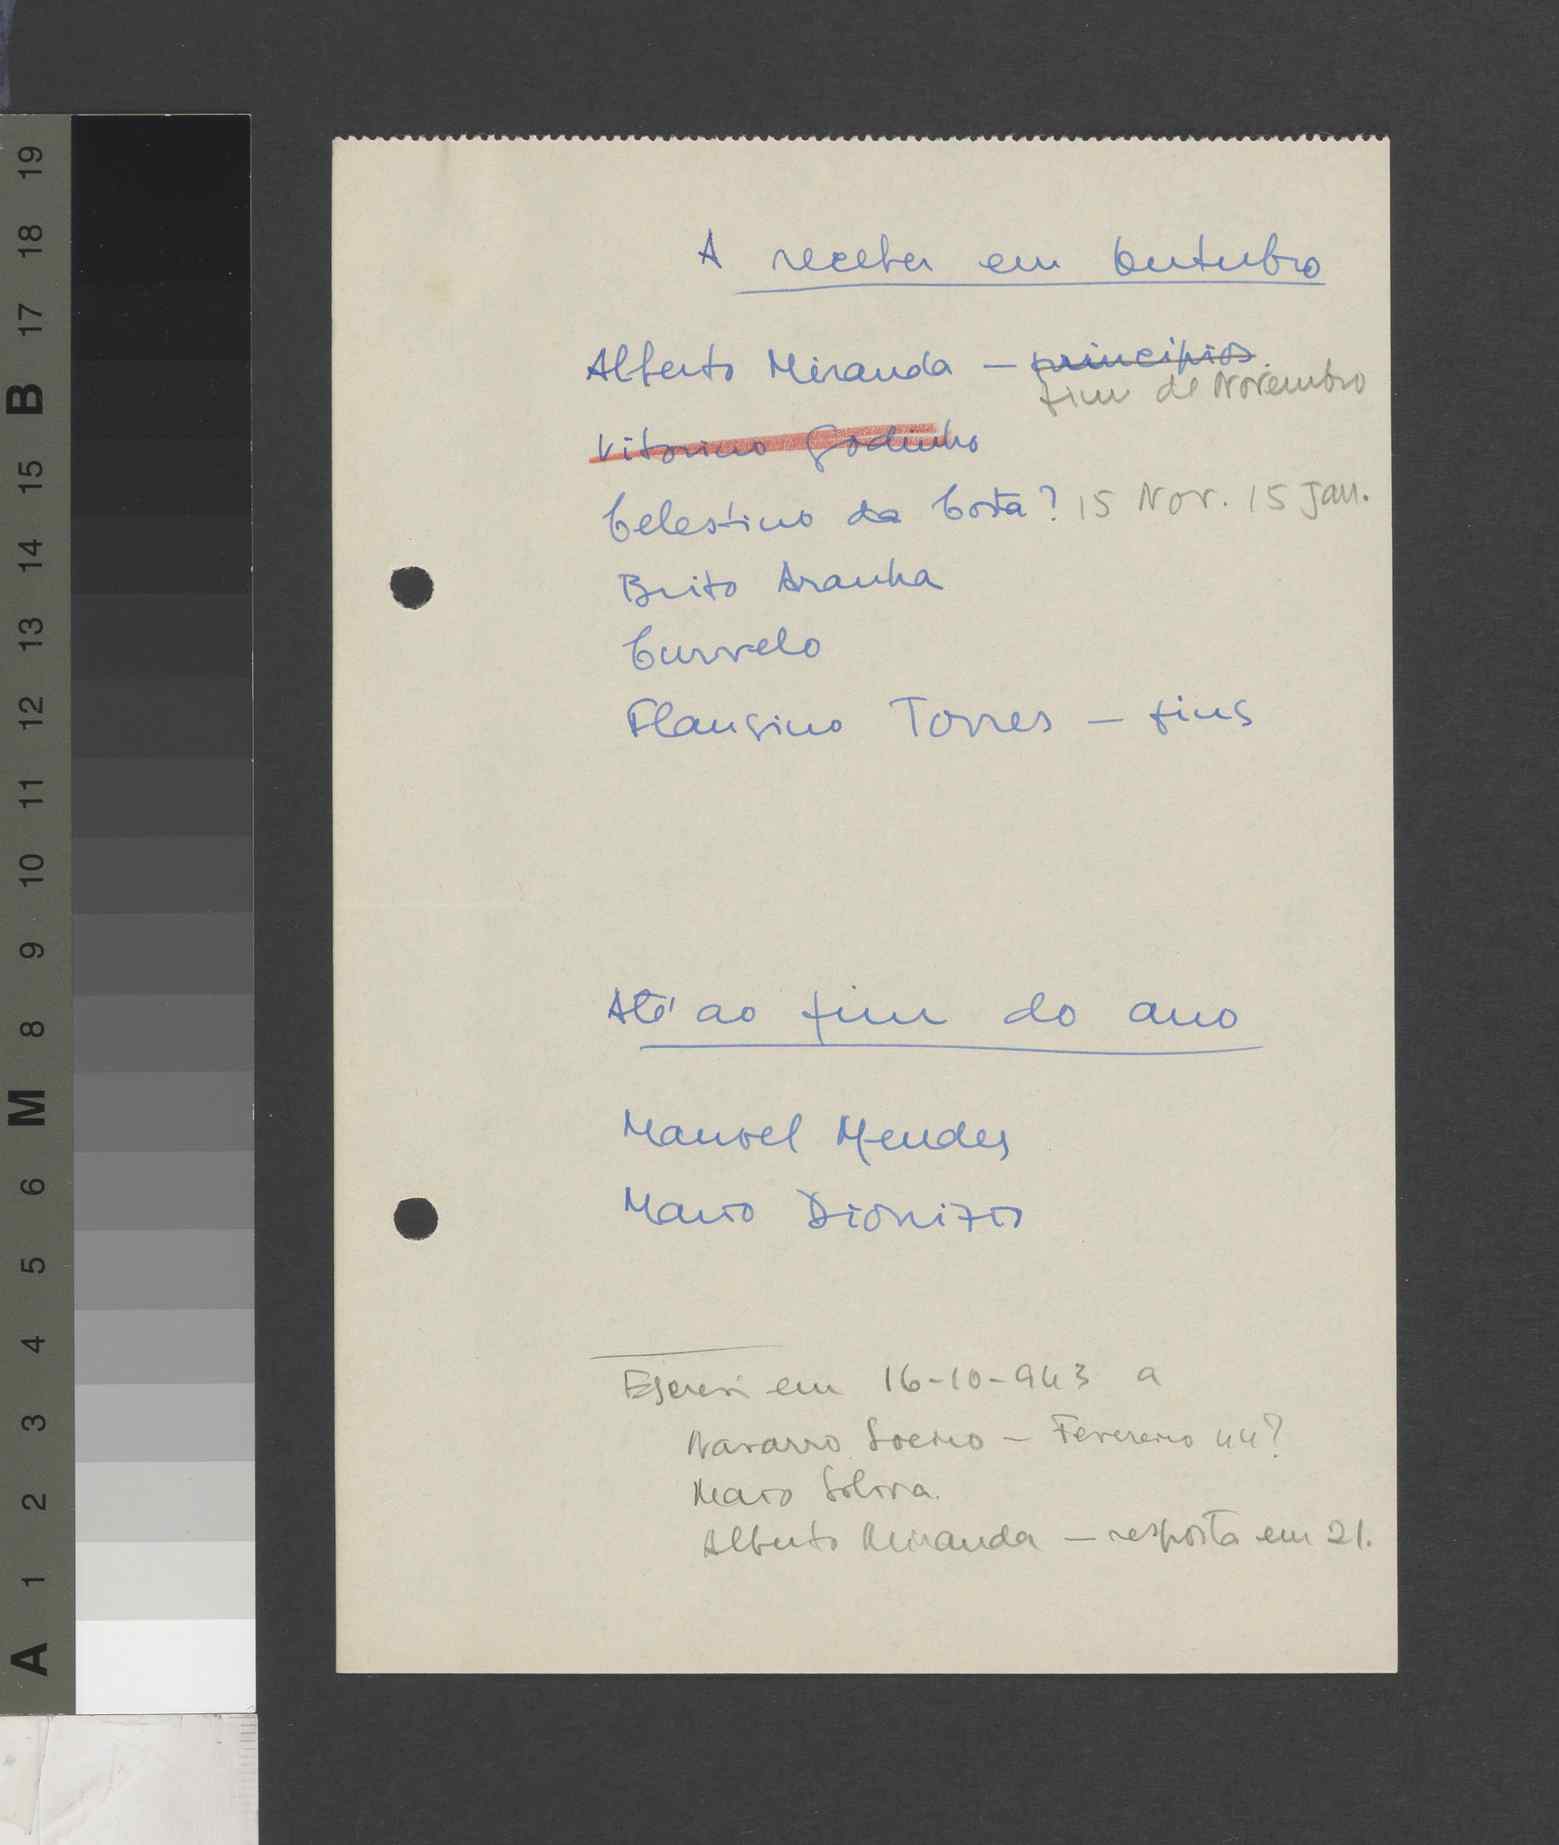 A receber em Outubro
Alberto Miranda — principios
fim de Novembro
Vitorino Godinho
Celestino da Costa? 15 Nov. 15 Jan.
Brito Aranha
Curvelo
Flausino Torres — fins
Até ao fim do ano
Manoel Mendes
Mario Dionizio
Escrevi em 16-10-943 a
Navarro Soeiro — Fevereiro 44?
Mario Silva.
Alberto Miranda — resposta em 21.
A 1 2 3 4 5 6 M 8 9 10 11 12 13 14 15 B 17 18 19